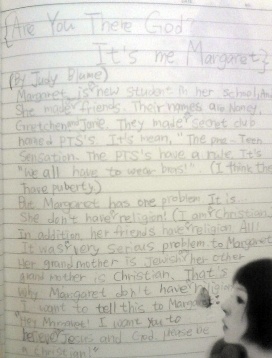 {Are You There God
It's me Margaret}
(By Judy Blume)
Margaret is new student in her school. And
She made friends. Their names are Nancy,
Gretchen and Jane. They made secret club
named PTS's. It's mean, "The pre-Teen
Sensation. The PTS's have a rule. It's
"we all have to wear bras!". (I think they
have puberty.)
But Margaret has one problem. It is
She don't have religion! (I am Christian)
In addition her friends have religion. All!
It was very serious problem to Margaret
Her grandmother is Jewish her other
grand mother is Christian. That's
Why Margaret don't have religion
I want to tell this to Margaret
"Hey Margaret! I want you to
believe Jesus and God, please be
a christian!"